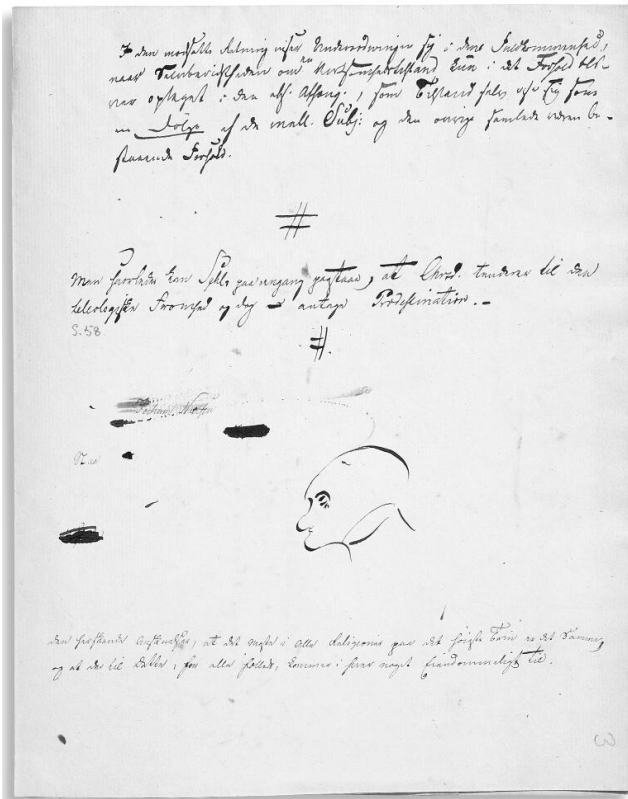 I den modsatte Retning viser Underordningen sig i dens Fuldkommenhed,
naar Selvbevidstheden om en Virksomhedstilstand kun i det Forhold bli-
ver optaget i den abs: Afhæng:, som Tilstand selv viser sig som
en Følge af de mell. Subj: og den øvrige samlede væren be-
staaende Forhold.
#
Men hvorledes kan paa engang paastaae, at Chrstd. tenderer til den
teleologiske Fromhed og dog – antage Prædestination. –
S. 58
#.
den herskende Anskuelse, at det meste i alle Religioner paa det høieste Trin er det Samme,
og at der til Dette, for alle fælleds, kommer i hver noget eiendommeligt til.